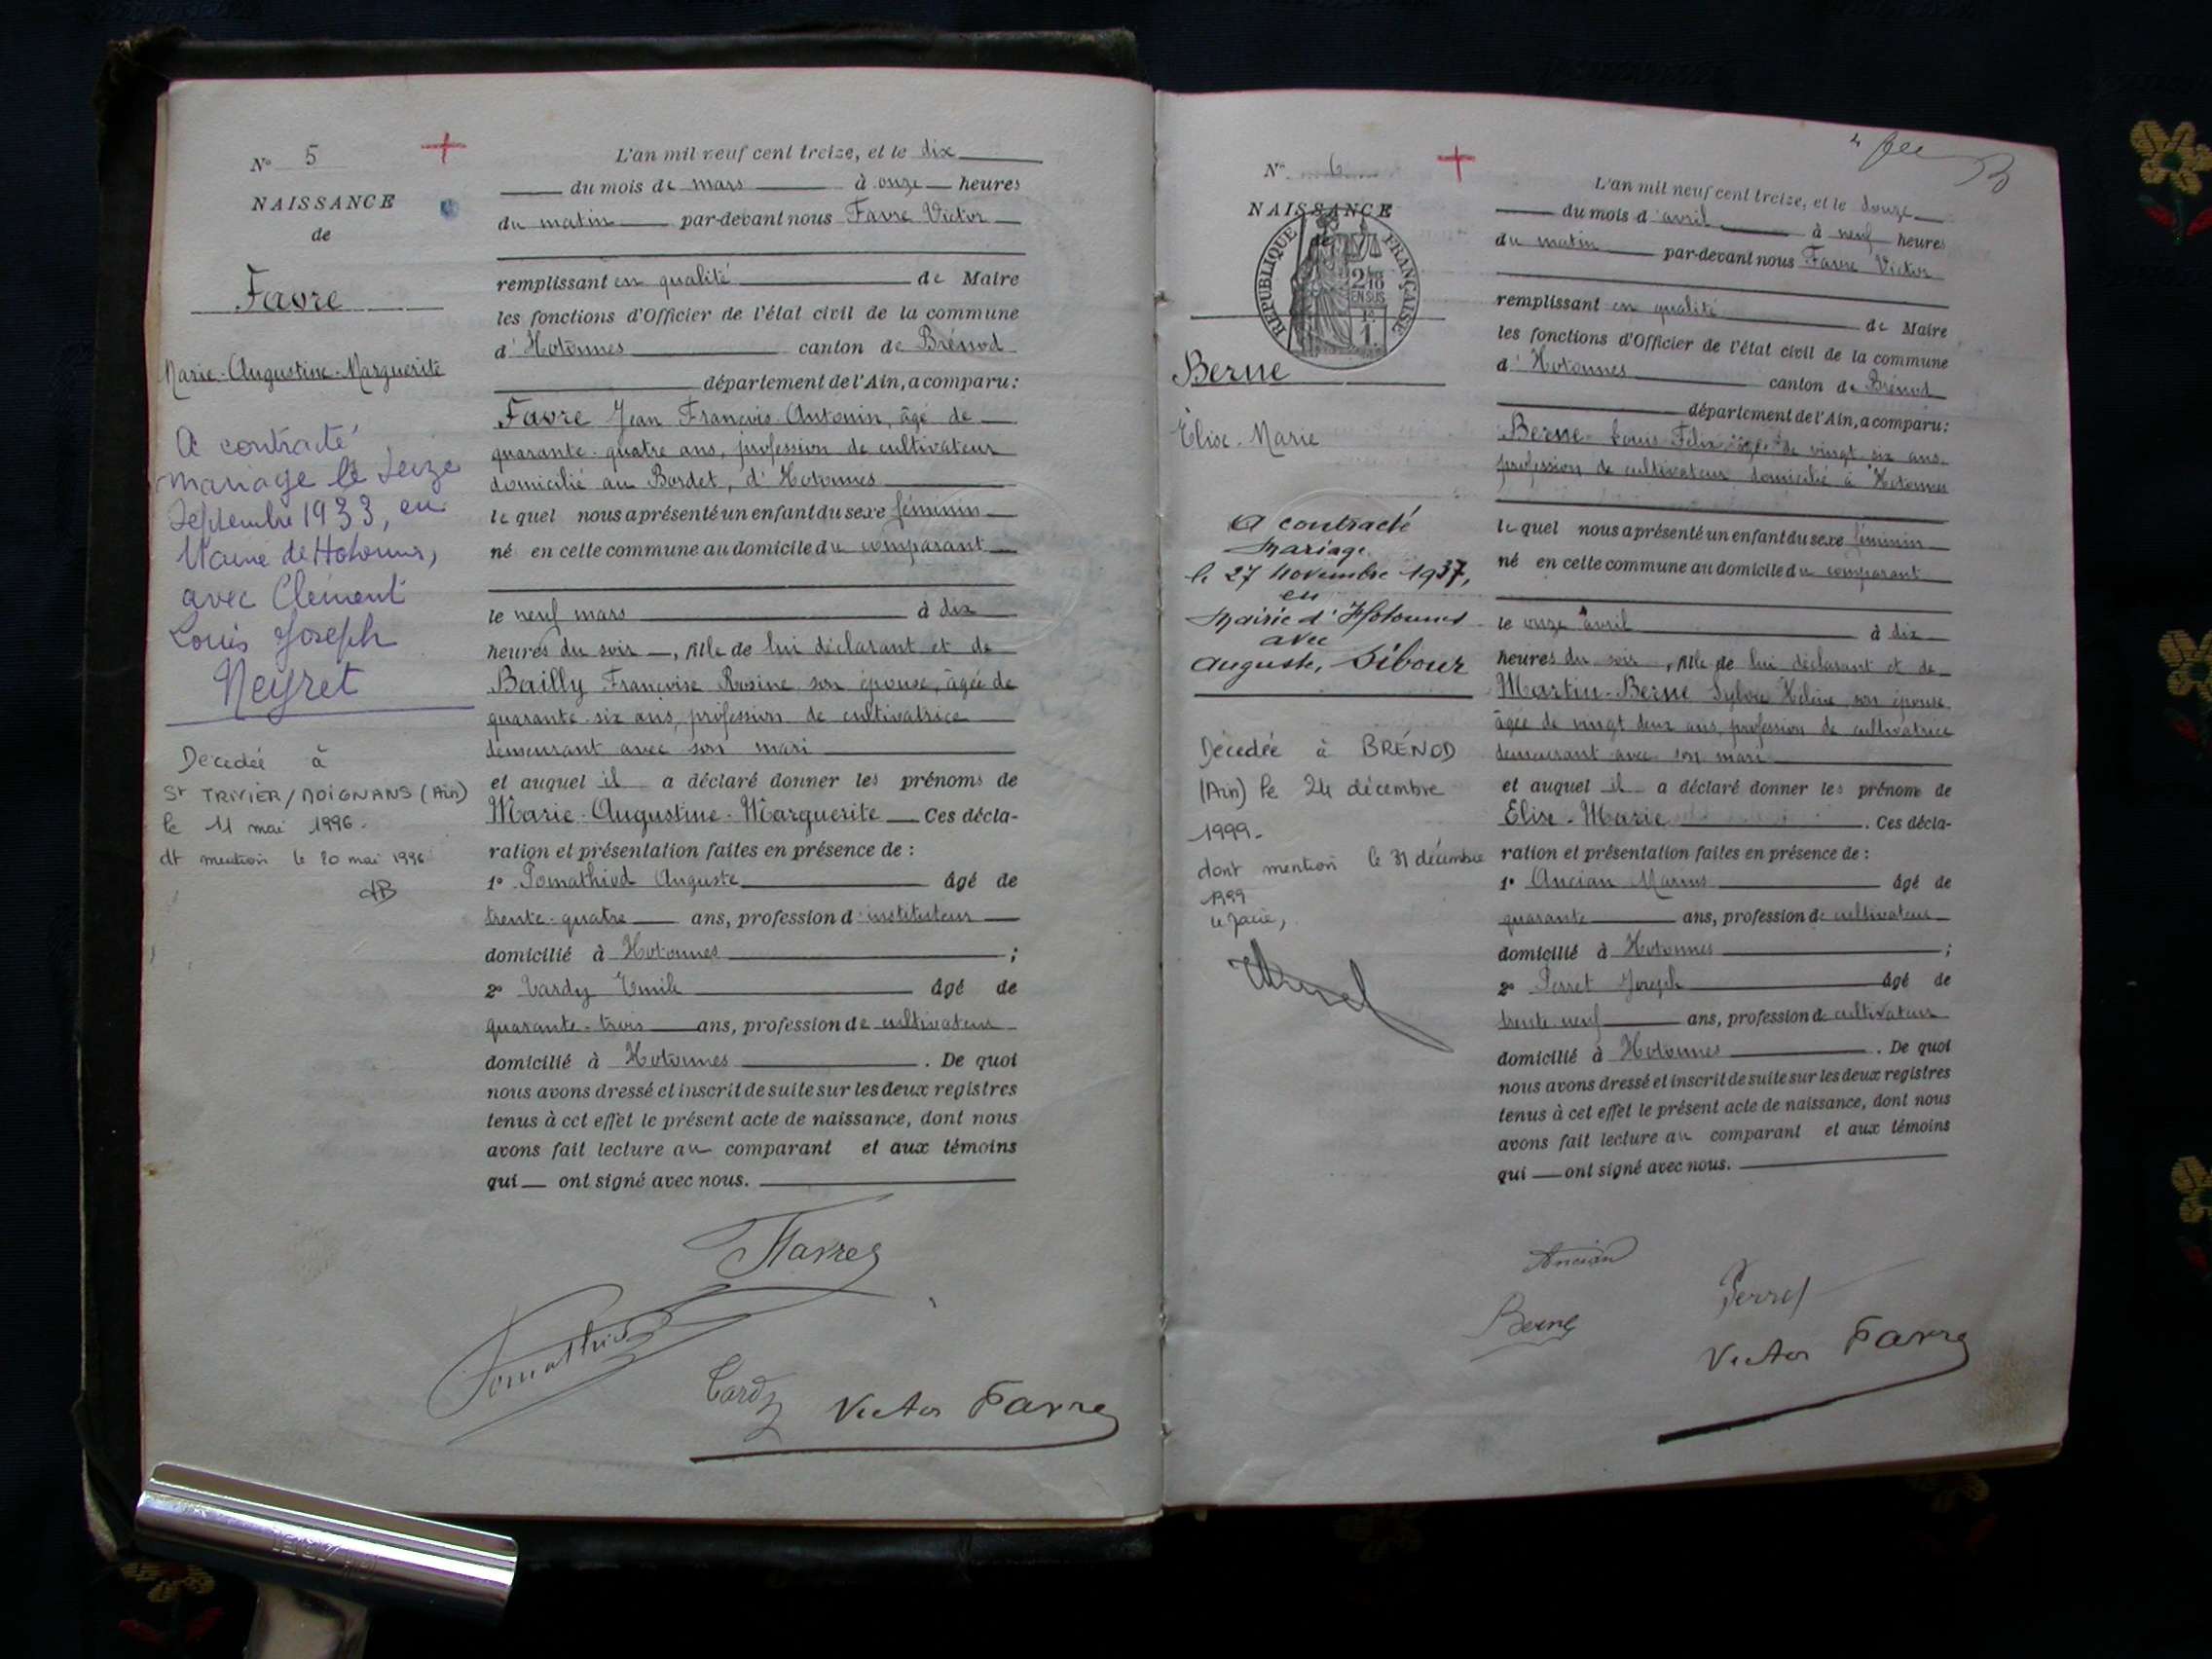 N° 5
NAISSANCE
de
Favre
Marie-Augustine-Marguerite
A contracté
mariage le seize
Septembre 1933, en
Mairie de Hotonnes,
avec Clément
Louis Joseph
Neyret
Décédée à
St TRIVIER/MOIGNANS (Ain)
le 11 mai 1996.
dt mention le 20 mai 1996
L'an mil neuf cent treize, et le dix
du mois de mars à onze heures
du matin par-devant nous Favre Victor
remplissant en qualité de Maire
les fonctions d'Officier de l'état civil de la commune
d'Hotonnes canton de Brénod
département de l'Ain, a comparu:
Favre Jean François Antonin, âgé de
quarante-quatre ans, profession de cultivateur
domicilié au Bordet, d'Hotonnes
lequel nous a présenté un enfant du sexe féminin
né en cette commune au domicile du comparant
le neuf mars à dix
heures du soir, fille de lui déclarant et de
Bailly Françoise Rosine son épouse, âgée de
quarante-six ans, profession de cultivatrice
demeurant avec son mari
et auquel il a déclaré donner les prénoms de
Marie-Augustine-Marguerite Ces décla-
ration et présentation faites en présence de :
1° Pomathiod Auguste âgé de
trente-quatre ans, profession d'instituteur
domicilié à Hotonnes ;
2° Tardy Emile âgé de
quarante-trois ans, profession de cultivateur
domicilié à Hotonnes . De quoi
nous avons dressé et inscrit de suite sur les deux registres
tenus à cet effet le présent acte de naissance, dont nous
avons fait lecture au comparant et aux témoins
qui ont signé avec nous.
Favre
Pomathiod
Tardy Victor Favre
N° 6
NAISSANCE
de
REPUBLIQUE FRANÇAISE
2/10
EN SUS
1.
Berne
Élise-Marie
A contracté
mariage
le 27 novembre 1937,
en
mairie d'Hotonnes
avec
Auguste, Sibour
Décédée à BRÉNOD
(Ain) le 24 décembre
1999.
dont mention le 31 décembre
1999
L'an mil neuf cent treize, et le douze
du mois d'avril à neuf heures
du matin par-devant nous Favre Victor
remplissant en qualité de Maire
les fonctions d'Officier de l'état civil de la commune
d'Hotonnes canton de Brénod
département de l'Ain, a comparu:
Berne Louis Félix, âgé de vingt-six ans
profession de cultivateur domicilié à Hotonnes
lequel nous a présenté un enfant du sexe féminin
né en cette commune au domicile du comparant
le onze avril à dix
heures du soir, fille de lui déclarant et de
Martin-Berne Sylvie Hélène son épouse
âgée de vingt deux ans, profession de cultivatrice
demeurant avec son mari
et auquel il a déclaré donner les prénoms de
Elise-Marie . Ces décla-
ration et présentation faites en présence de :
1° Ancian Marius âgé de
quarante ans, profession de cultivateur
domicilié à Hotonnes ;
2° Perret Joseph âgé de
trente-neuf ans, profession de cultivateur
domicilié à Hotonnes . De quoi
nous avons dressé et inscrit de suite sur les deux registres
tenus à cet effet le présent acte de naissance, dont nous
avons fait lecture au comparant et aux témoins
qui ont signé avec nous.
Ancian
Perret
Berne
Victor Favre